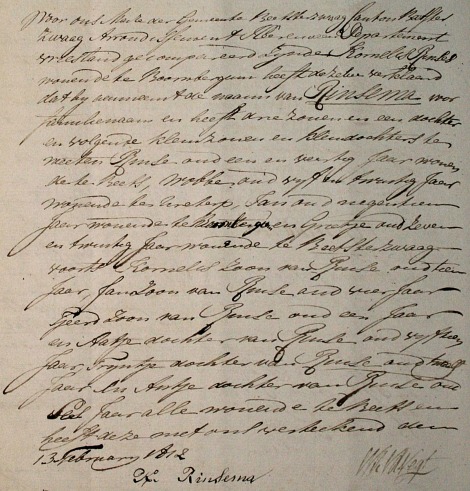 Voor ons Maire der Gemeente Beetsterzwaag Canton Beetster
zwaag Arrondissement Heerenveen Departement
Vriesland gecompareerd zijnde Kornelis Rinses
wonende te Boornbergum heeft dezelve verklaard
dat hy aanneemt de naam van Rinsema voor
familienaam en heeft drie zonen en een dochter
en volgende kleinzonen en kleindochters te
weeten Rinse oud een en veertig Jaar wonen
de te Beets, Wobbe oud vyf en twintig Jaar
wonende te Ureterp, Jan oud negentien
Jaar wonende te en Grietje oud zeven
en twintig Jaar wonende te Beetsterzwaag
voorts Kornelis zoon van Rinse oud tien
Jaar, Jan zoon van Rinse oud vier Jaar
Geert zoon van Rinse oud een Jaar
en Aatje dochter van Rinse oud vyftien
Jaar, Tryntje dochter van Rinse oud twaalf
Jaar en Antje dochter van Rinse oud
Jaar alle wonende te Beets en
heeft deze met ons verteekend den
13 February 1812
K. R. Rinsema